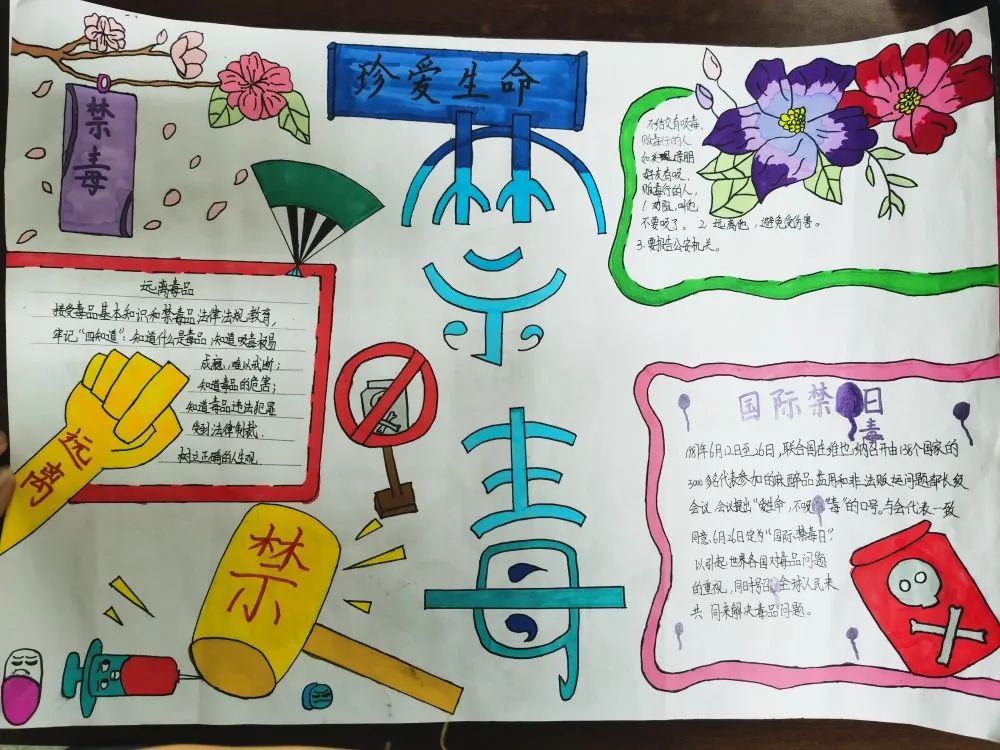 禁毒
珍爱生命
禁毒
不结交有吸毒、
贩毒行的人
如果 亲朋
好友有吸、
贩毒行的人,
1. 劝阻,叫他
不要吸了。 2. 远离他,避免受伤害。
3. 要报告公安机关。
远离毒品
接受毒品基本知识和禁毒品法律法规教育,
牢记“四知道”:知道什么是毒品,知道吸毒易
成瘾,难以戒断;
知道毒品的危害;
知道毒品违法犯罪
受到法律制裁.
树立正确的人生观.
远离
禁
国际禁 日
毒
1987年6月12日至26日,联合国在维也纳召开由138个国家的
3000多名代表参加的麻醉品滥用和非法贩运问题部长级
会议.会议提出“爱生命,不吸 毒”的口号。与会代表一致
同意.6月26日定为“国际禁毒日”.
以引起世界各国对毒品问题
的重视,同时号召全球人民来
共 同来解决毒品问题。